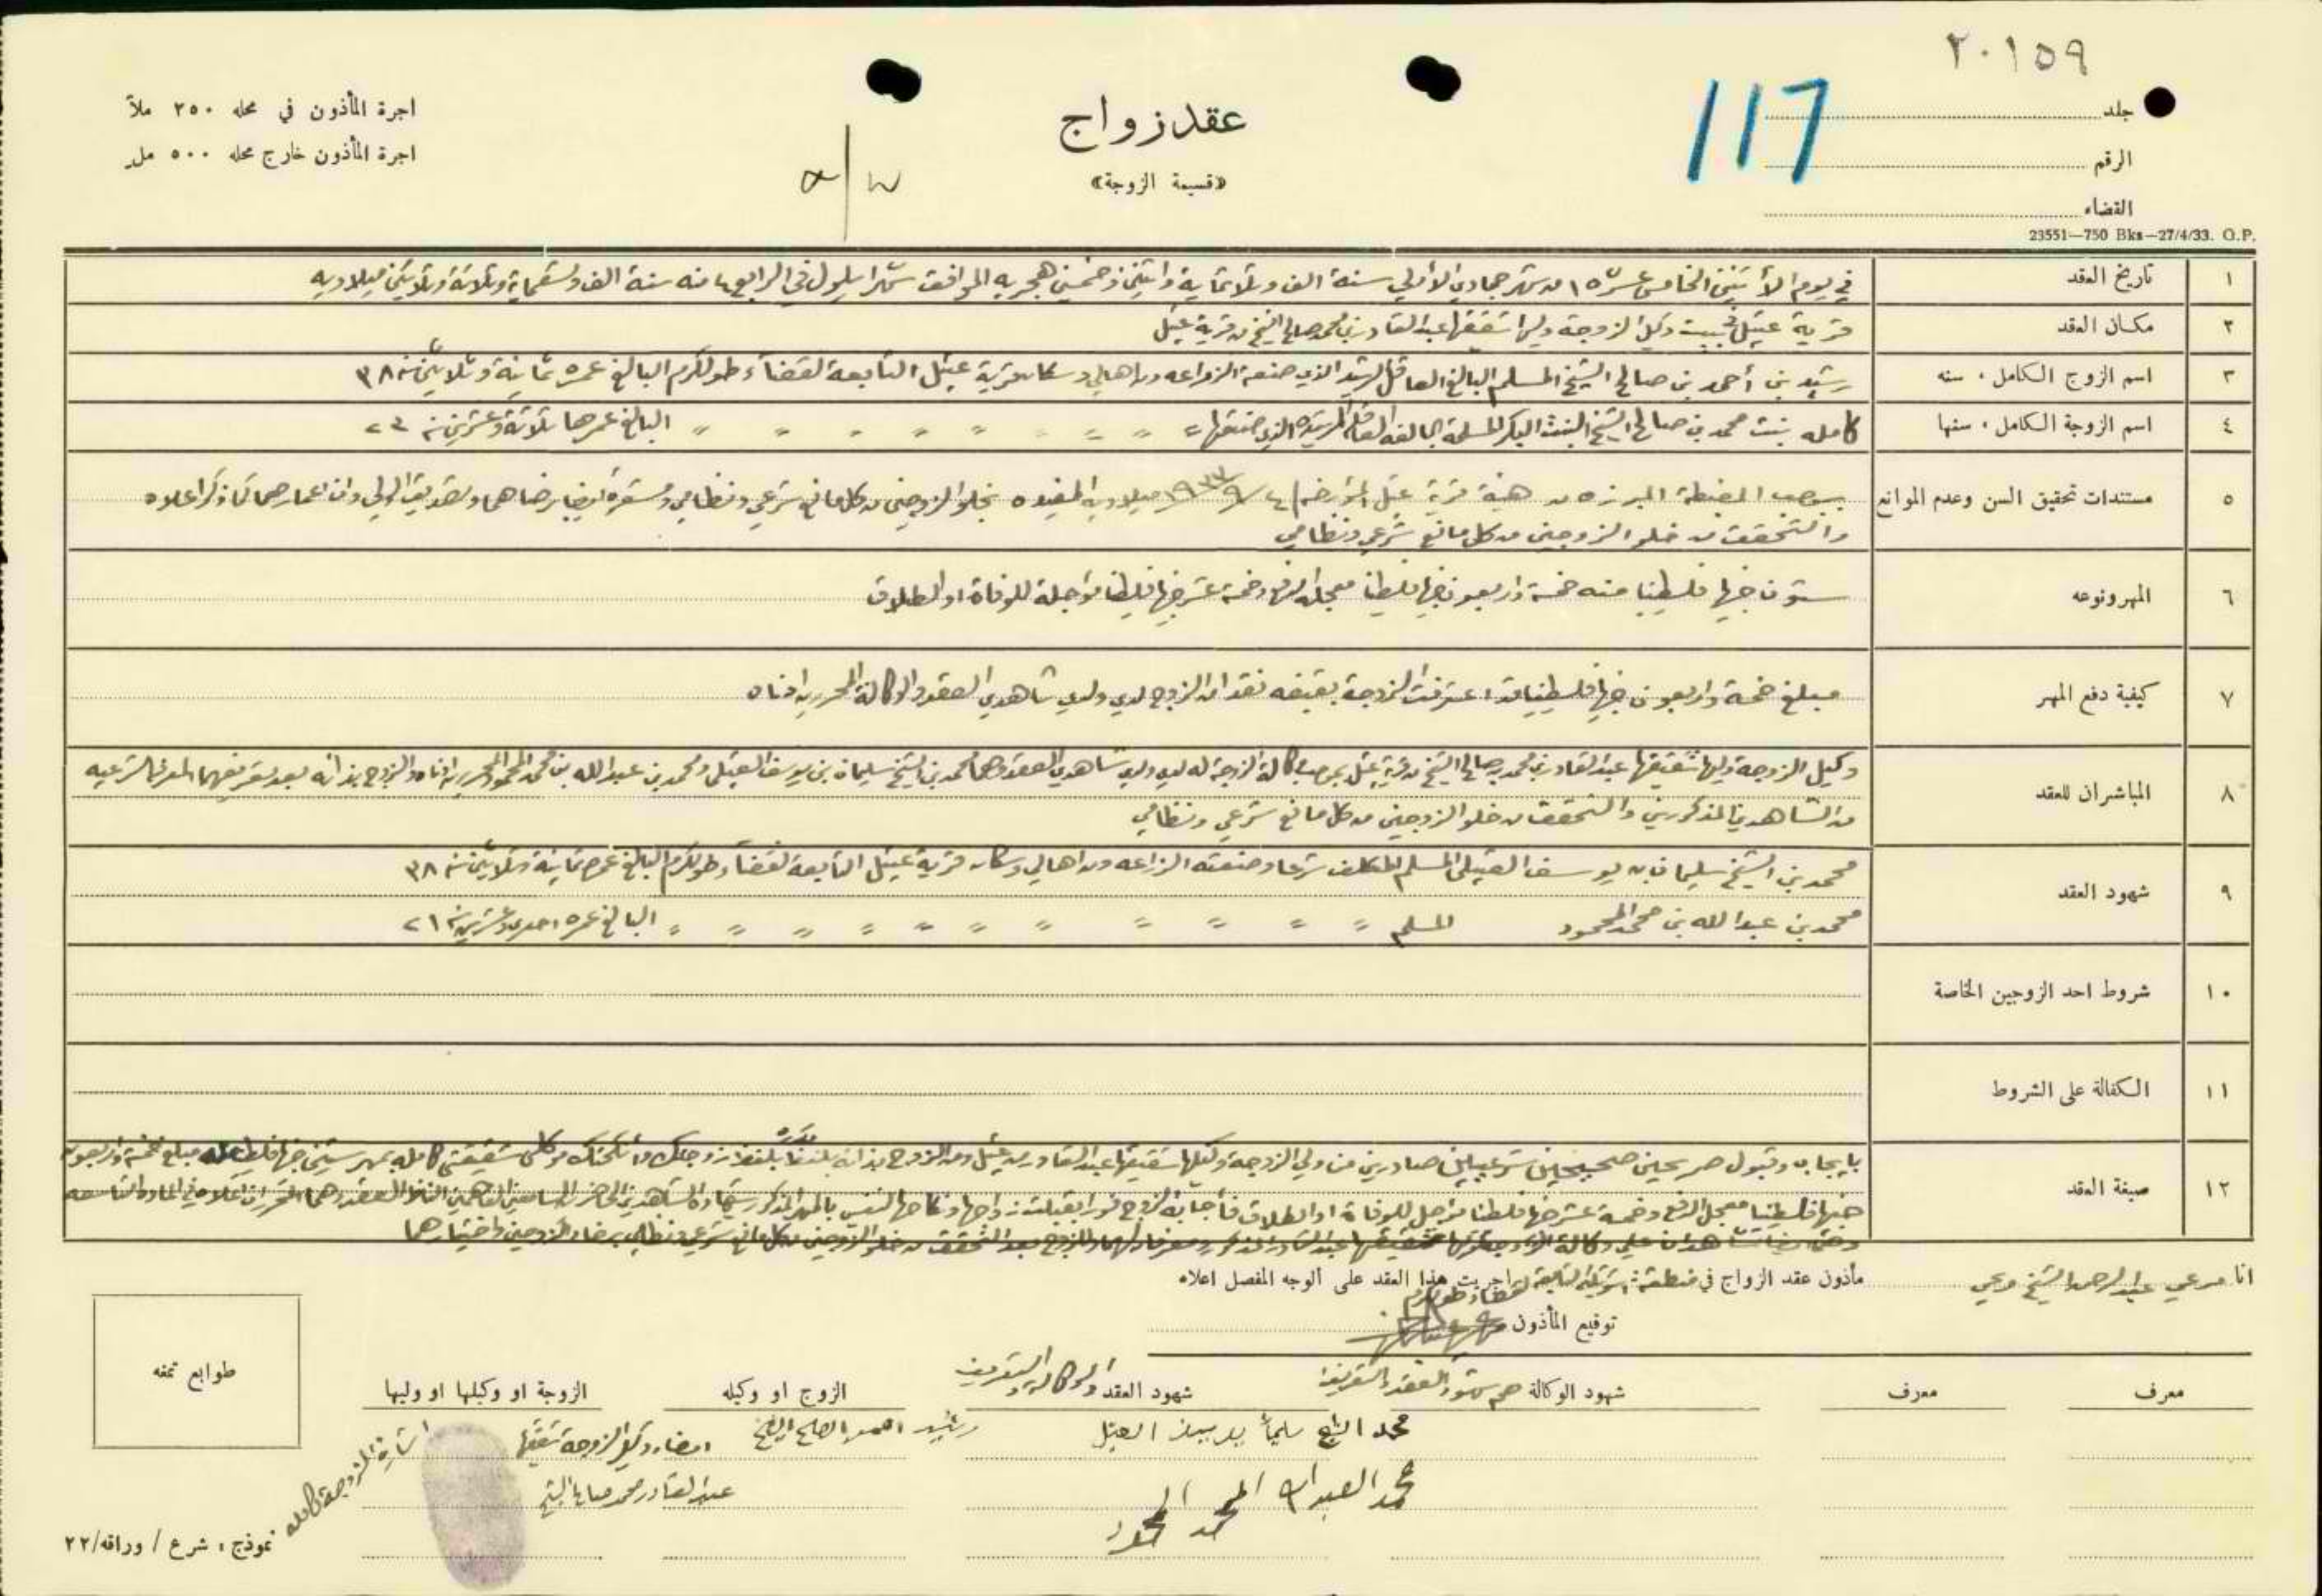 ٢٠١٥٩
جلد
117
الرقم
القضاء
23551—750 Bks—27/4/33. O.P.
عقد زواج
«قسيمة الزوجة»
اجرة المأذون في محله ٢٥٠ ملاً
اجرة المأذون خارج محله ٥٠٠ مل
١ تاريخ العقد في يوم الأثنين الخامس عشر ١٥ من شهر جمادي الأولى سنة الف وثلاثماية واثنين وخمسين هجريه الموافق شهر ايلول في الرابع ٤ منه سنة الف وتسعماية وثلاثة وثلاثين ميلاديه
٢ مكان العقد قرية عتيل ببيت وكيل الزوجة وليها شقيقها عبد القادر بن محمد صالح الشيخ من قرية عتيل
٣ اسم الزوج الكامل، سنه رشيد بن أحمد بن صالح الشيخ المسلم البالغ العاقل الرشيد الذي صنعته الزراعه ومن اهالي وسكان قرية عتيل التابعة لقضاء طولكرم البالغ عمره ثمانية وثلاثين سنه ٣٨
٤ اسم الزوجة الكامل، سنها كامله بنت محمد بن صالح الشيخ البنت البكر المسلمة البالغه العاقله الرشيده الذي صنعتها " " " " " " " " البالغ عمرها ثلاثة وعشرين سنه ٢٣
٥ مستندات تحقيق السن وعدم الموانع بموجب المضبطة المبرزه من هيئة قرية عتيل المؤرخه ٤/٩/١٩٣٣ ميلاديه المفيده بخلو الزوجين من كل مانع شرعي ونظامي ومشعرة ايضا برضاهما وتصديق الولي وان اعمارهما كما ذكر اعلاه
والتحقق من خلو الزوجين من كل مانع شرعي ونظامي
٦ المهر ونوعه ستون جنيها فلسطينيا منه خمسة واربعون جنيها فلسطينيا معجلة الدفع وخمسة عشر جنيها فلسطينيا مؤجلة للوفاة او الطلاق
٧ كيفية دفع المهر مبلغ خمسة واربعون جنيها فلسطينيا قد اعترفت الزوجة بقبضه نقدا من الزوج لدي ولدى شاهدي العقد والوكالة المحررين ادناه
٨ المباشران للعقد وكيل الزوجة وليها شقيقها عبد القادر بن محمد بن صالح الشيخ من قرية عتيل بموجب وكالة الزوجة له لدي ولدى شاهدي العقد وهما محمد بن الشيخ سليمان بن يوسف العتيلي ومحمد بن عبد الله بن محمد المحمود المحررين ادناه والزوج بذاته بعد تعريفهما المعرفة الشرعيه
من الشاهدين المذكورين والتحقق من خلو الزوجين من كل مانع شرعي ونظامي
٩ شهود العقد محمد بن الشيخ سليمان بن يوسف العتيلي المسلم المكلف شرعا وصنعته الزراعه ومن اهالي وسكان قرية عتيل التابعة لقضاء طولكرم البالغ عمره ثمانية وثلاثين سنه ٣٨
محمد بن عبد الله بن محمد المحمود المسلم " " " " " " " " " " البالغ عمره احدى وعشرين سنه ٢١
١٠ شروط احد الزوجين الخاصة
١١ الكفالة على الشروط
١٢ صيغة العقد بايجاب وقبول صريحين صحيحين شرعيين صادرين من ولي الزوجة وكيلها شقيقها عبد القادر من عتيل ومن الزوج بذاته بلفظ زوجتك وأنكحتك موكلتي شقيقتي كامله بمهر ستين جنيها فلسطينيا مبلغ خمسة واربعون
جنيها فلسطينيا معجل الدفع وخمسة عشر جنيها فلسطينيا مؤجل للوفاة او الطلاق فأجابه الزوج فورا بقبلت زواجها ونكاحها لنفسي بالمهر المذكور بشهادة الشاهدين الحاضرين السامعين الفاهمين العقد وهما المحرران اعلاه في المادة التاسعه
انا مرعي عبد الرحمن الشيخ مرعي مأذون عقد الزواج في منطقة التابعة لقضاء طولكرم اجريت هذا العقد على الوجه المفصل اعلاه
توقيع المأذون
معرف
معرف
شهود الوكالة هم شهود العقد والتعريف
شهود العقد والوكالة والتعريف
الزوج او وكيله
الزوجة او وكيلها او وليها
طوابع تمغه
محمد الشيخ سليمان يوسف العتيلي
محمد العبدالله المحمد المحمود
رشيد احمد الصالح الشيخ
امضاء وكيل الزوجة شقيقها
عبد القادر محمد صالح الشيخ
اشارة الزوجة كامله
نموذج، شرع / وراقه/٢٢